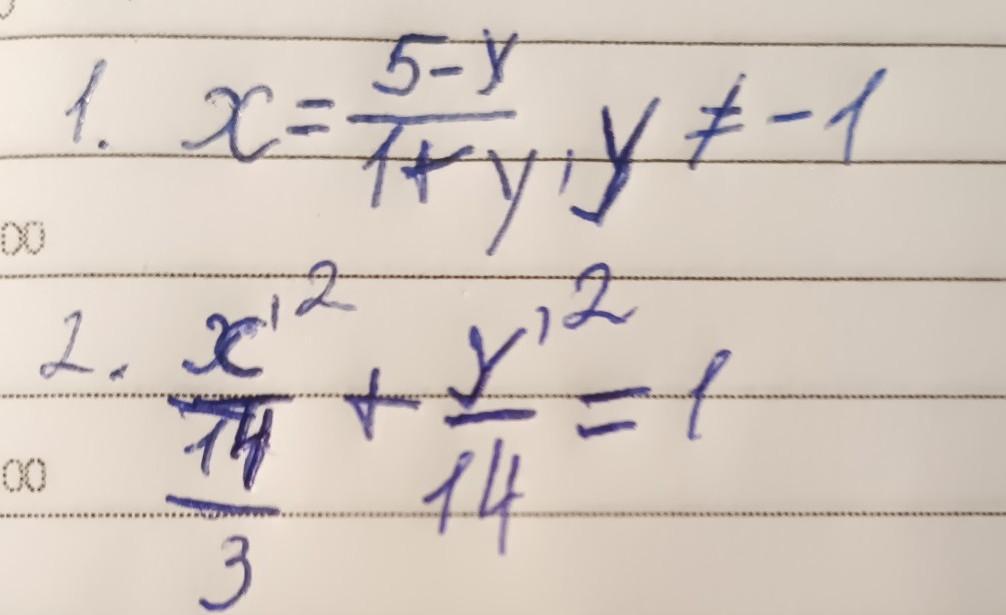 1. x = (5-y)/(1+y), y ≠ -1
00
2. x'²/(14/3) + y'²/14 = 1
00